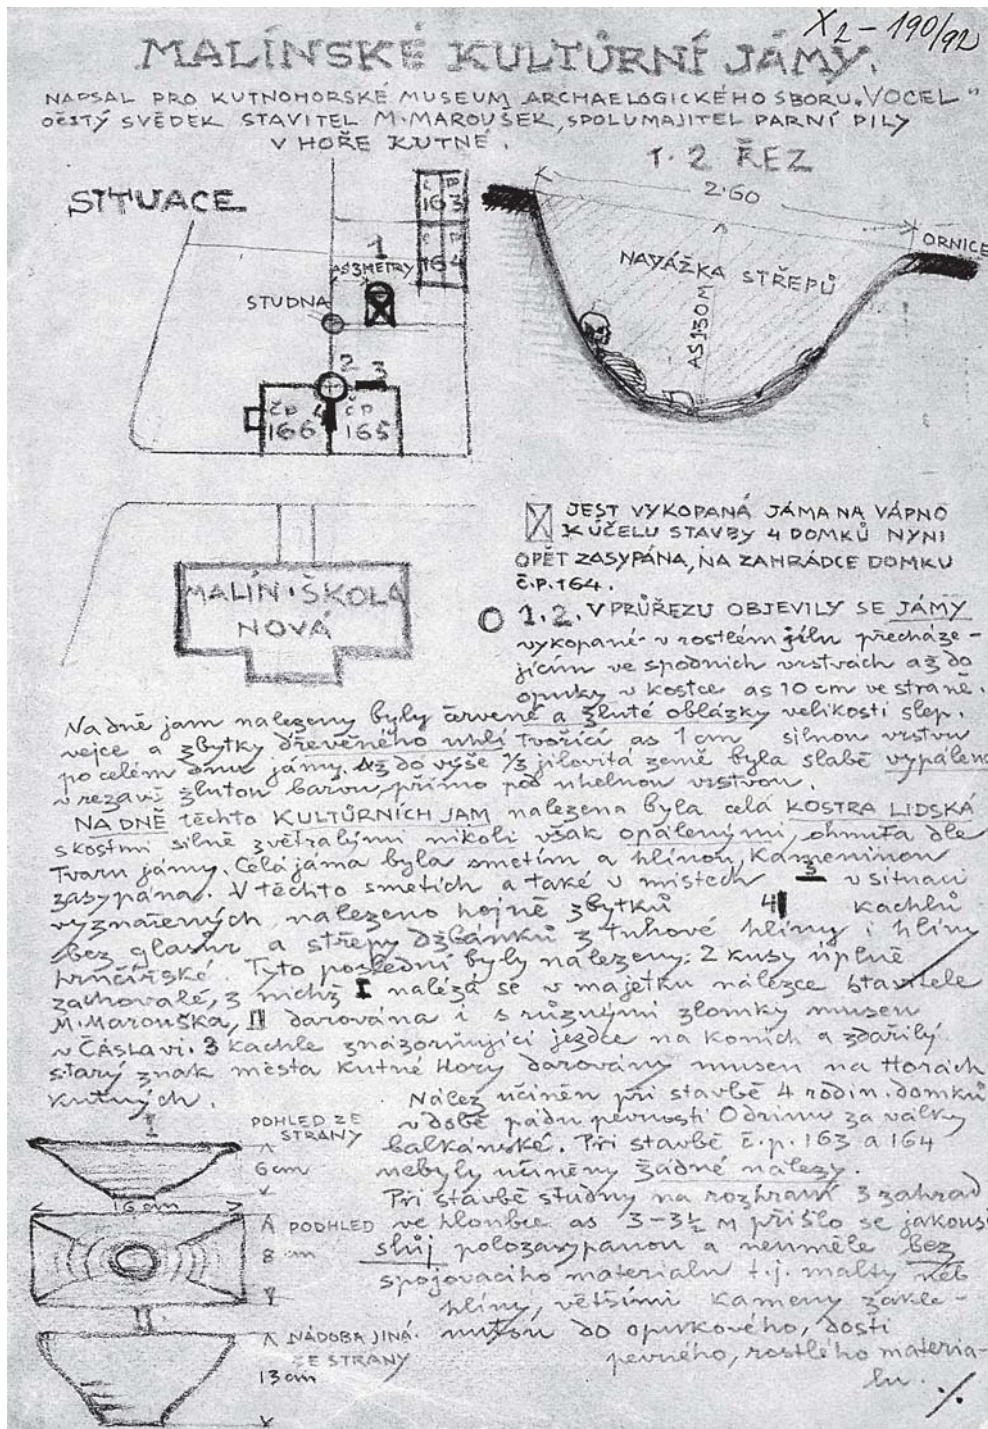 X2 - 190/92
MALÍNSKÉ KULTŮRNÍ JÁMY.
NAPSAL PRO KUTNOHORSKÉ MUSEUM ARCHAELOGICKÉHO SBORU „VOCEL"
OČITÝ SVĚDEK STAVITEL M. MAROUŠEK, SPOLUMAJITEL PARNÍ PILY
V HOŘE KUTNÉ.
SITUACE
Č P
163
Č P
164
1
AS 3 METRY
STUDNA
2 3
ČP
166
4
ČP
165
1. 2 ŘEZ
2·60
ORNICE
NAVÁŽKA STŘEPŮ
AS 1·30 M
MALÍN · ŠKOLA
NOVÁ
JEST VYKOPANÁ JÁMA NA VÁPNO
K ÚČELU STAVBY 4 DOMKŮ NYNI
OPĚT ZASYPÁNA, NA ZAHRÁDCE DOMKU
č.p. 164.
1. 2. V PRŮŘEZU OBJEVILY SE JÁMY
vykopané v rostlém jílu přecháze-
jícím ve spodních vrstvách až do
opuky v kostce as 10 cm ve straně.
Na dně jam nalezeny byly červené a žluté oblázky velikosti slep.
vejce a zbytky dřevěného uhlí tvořící as 1 cm silnou vrstvu
po celém dnu jámy. Až do výše 1/3 jílovitá země byla slabě vypálena
v rezavě žlutou barvu, přímo pod uhelnou vrstvou.
NA DNĚ těchto KULTŮRNÍCH JAM nalezena byla celá KOSTRA LIDSKÁ
s kostmi silně zvětralými nikoli však opálenými, ohnutá dle
tvaru jámy. Celá jáma byla smetím a hlínou, kameninou
zasypána. V těchto smetích a také v místech 3 v situaci
vyznačených nalezeno hojně zbytků 4 kachlů
bez glasur a střepy džbánků z tuhové hlíny i hlíny
hrnčířské. Tyto poslední byly nalezeny: 2 kusy úplně
zachovalé, z nichž I nalézá se v majetku nálezce stavitele
M. Marouška, II darována i s různými zlomky museu
v ČÁSLAVI. 3 kachle znázorňující jezdce na koních a zdařilý
starý znak města Kutné Hory darovány museu na Horách
Kutných.
Nález učiněn při stavbě 4 rodin. domků
v době pádu pevnosti Odrinu za války
balkánské. Při stavbě č.p. 163 a 164
nebyly učiněny žádné nálezy.
Při stavbě studny na rozhraní 3 zahrad
ve hloubce as 3 - 3½ M přišlo se jakousi
sluj polozasypanou a neuměle bez
spojovacího materialu t.j. malty neb
hlíny, většími kameny zakle-
nutou do opukového, dosti
pevného, rostlého materia-
lu. ./.
I
POHLED ZE
STRANY
6 cm
16 cm
PODHLED
8 cm
II
NÁDOBA JINÁ
ZE STRANY
13 cm